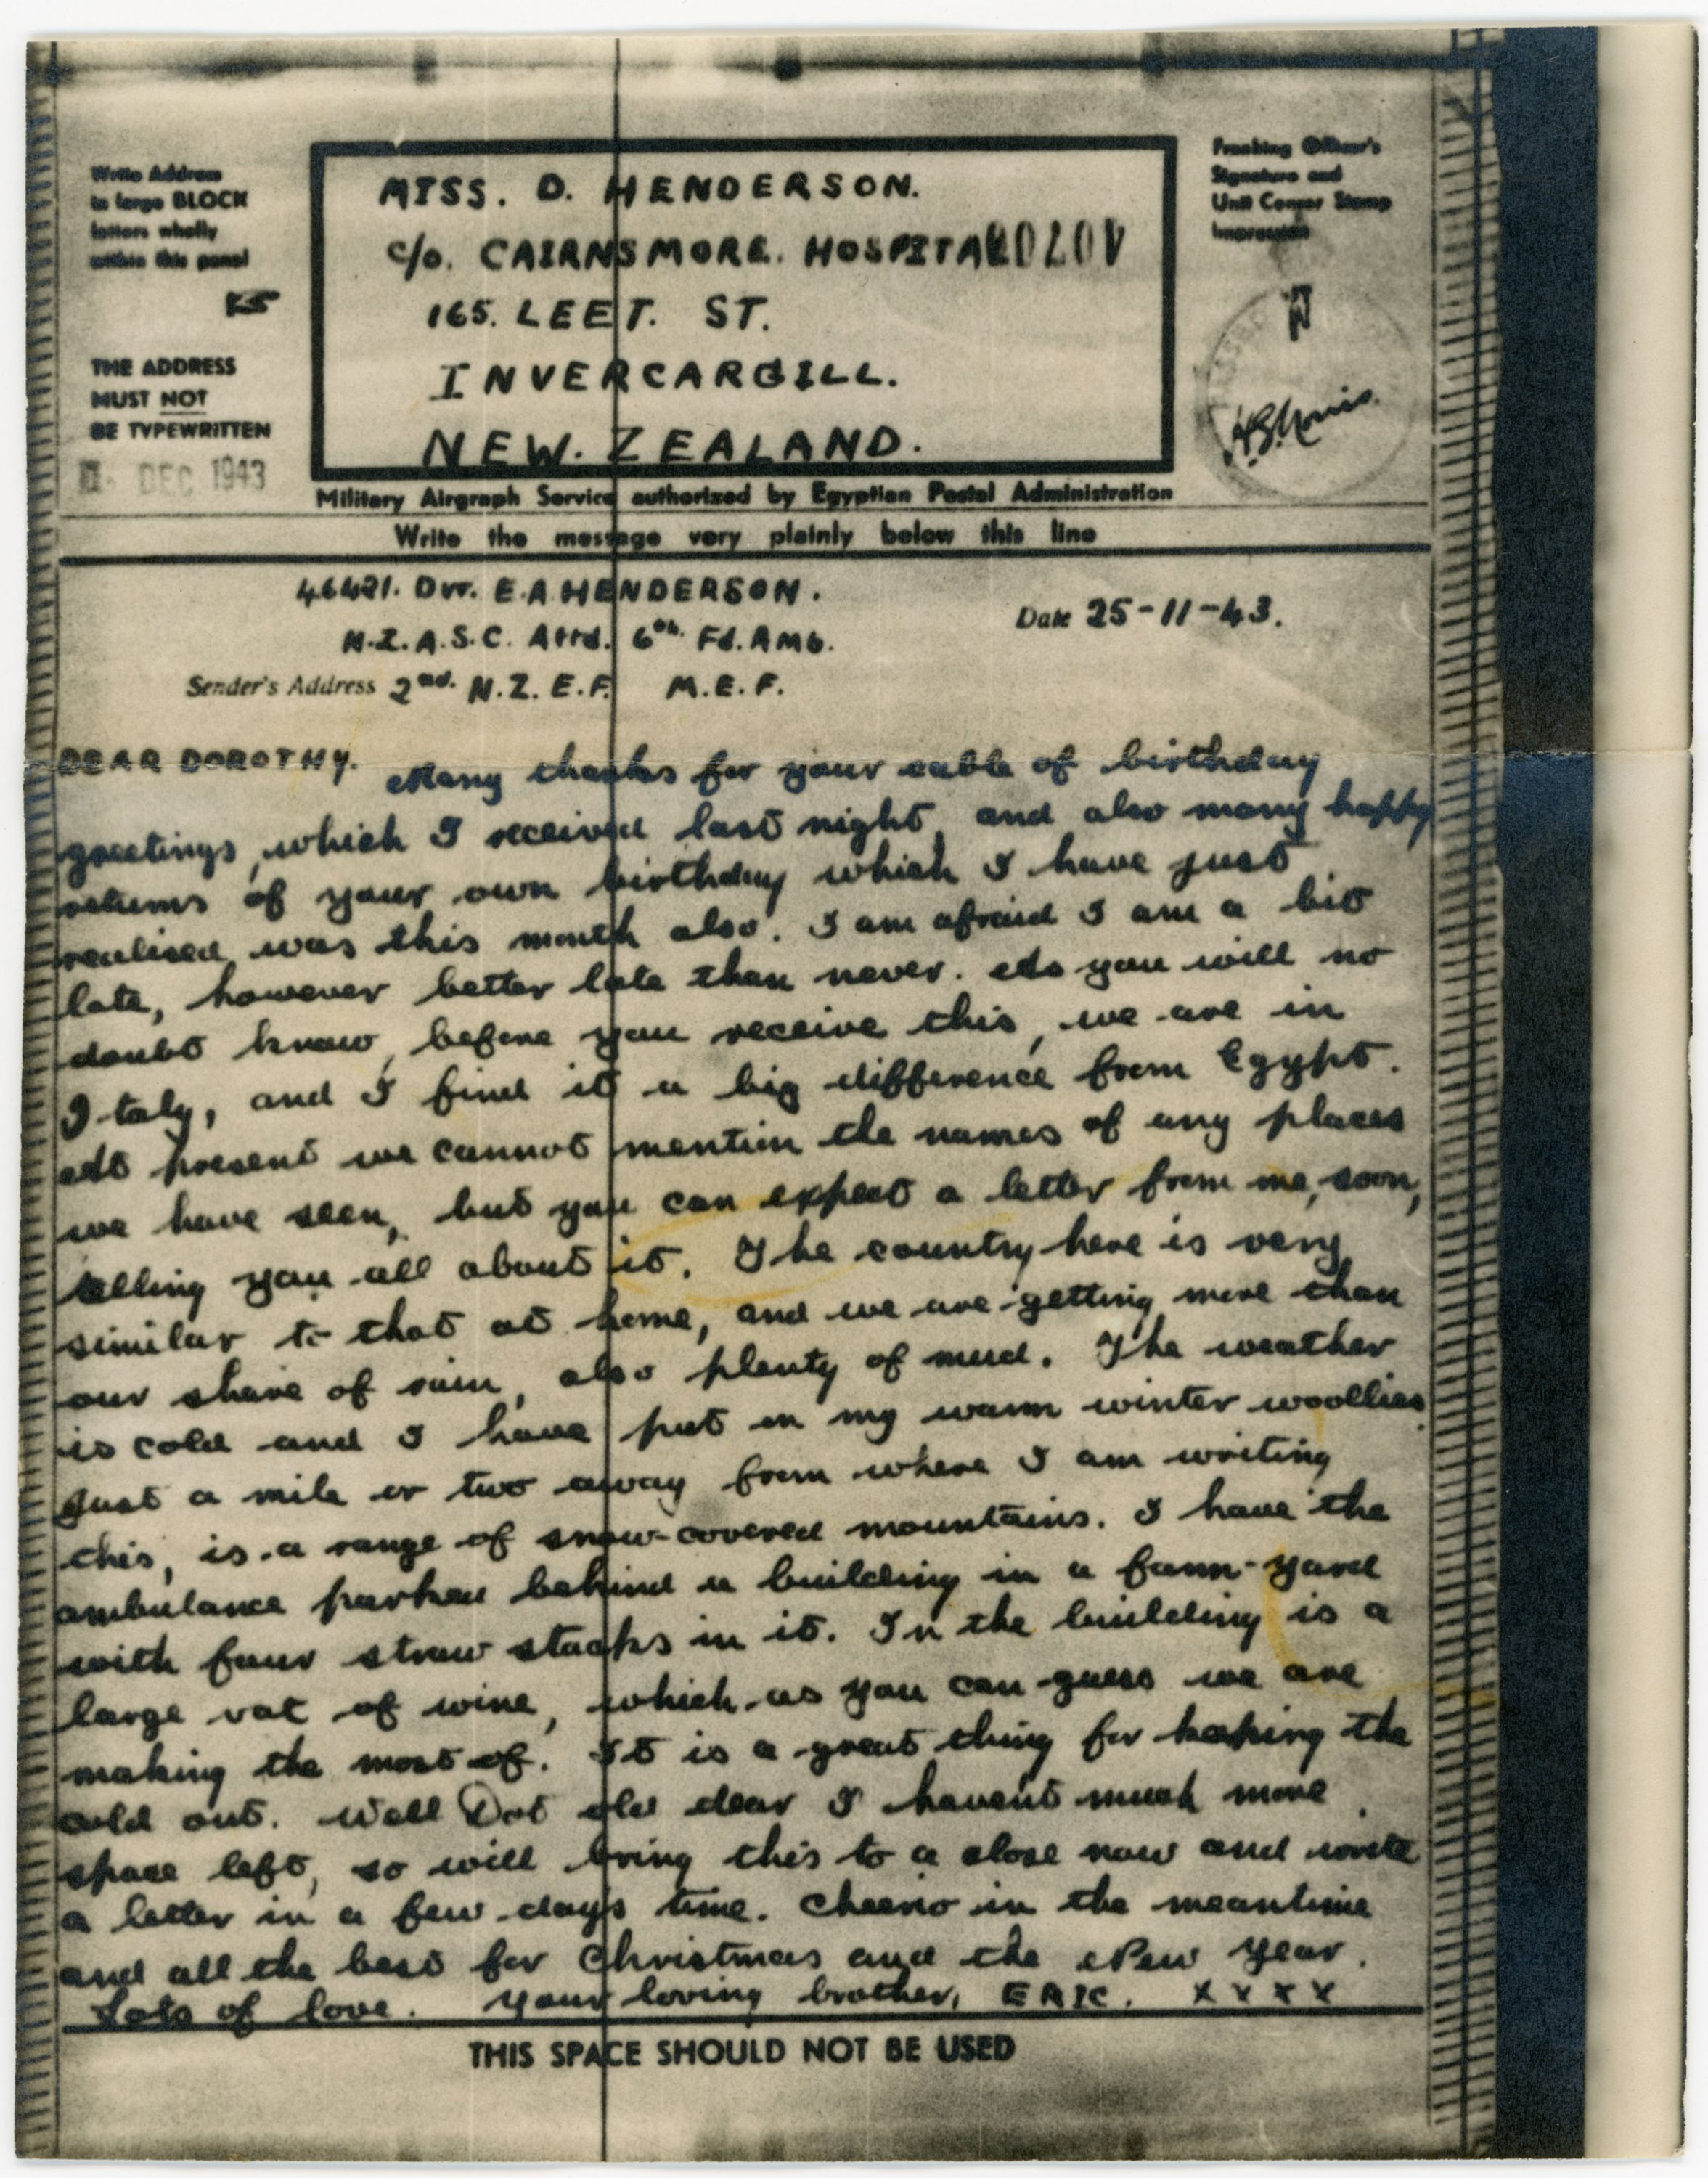 Write Address
in large BLOCK
letters wholly
within this panel
THE ADDRESS
MUST NOT
BE TYPEWRITTEN
DEC 1943
MISS. D. HENDERSON.
c/o. CAIRNSMORE. HOSPITAL
165. LEET. ST.
INVERCARGILL.
NEW. ZEALAND.
Franking Officer's
Signature and
Unit Censor Stamp
Impression
Military Airgraph Service authorized by Egyptian Postal Administration
Write the message very plainly below this line
46421. Dvr. E.A HENDERSON.
N.Z.A.S.C. Attd. 6th. Fd. AMb.
Date 25-11-43.
Sender's Address 2nd. N.Z.E.F. M.E.F.
DEAR DOROTHY. Many thanks for your cable of birthday
greetings, which I received last night, and also many happy
returns of your own birthday which I have just
realised, was this month also. I am afraid I am a bit
late, however better late than never. As you will no
doubt know, before you receive this, we are in
Italy, and I find it a big difference from Egypt.
At present we cannot mention the names of any places
we have seen, but you can expect a letter from me, soon,
telling you all about it. The country here is very
similar to that at home, and we are getting more than
our share of rain, also plenty of mud. The weather
is cold and I have put on my warm winter woollies
Just a mile or two away from where I am writing
this, is a range of snow-covered mountains. I have the
ambulance parked behind a building in a farm-yard
with four straw stacks in it. In the building is a
large vat of wine, which as you can guess we are
making the most of. It is a great thing for keeping the
cold out. Well Dot old dear I haven't much more
space left, so will bring this to a close now and write
a letter in a few days time. Cheerio in the meantime
and all the best for Christmas and the New Year.
Lots of love. Your loving brother, ERIC. X X X X
THIS SPACE SHOULD NOT BE USED